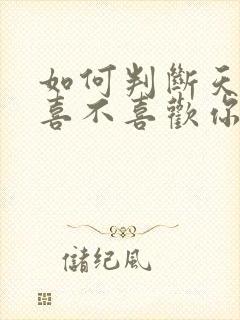 如何判斷天
喜不喜歡你
儲紀風